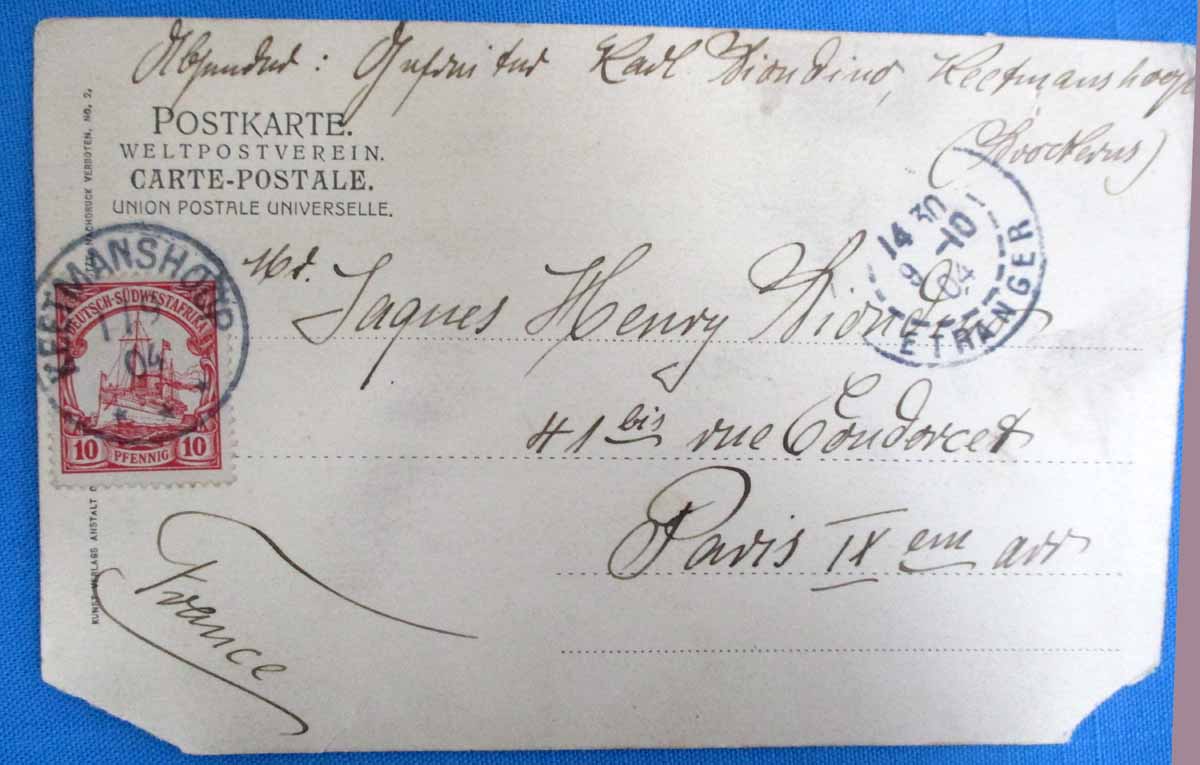 Absender: Gefreiter Karl Diondino, Keetmanshoop
POSTKARTE.
WELTPOSTVEREIN.
CARTE-POSTALE.
UNION POSTALE UNIVERSELLE.
NACHDRUCK VERBOTEN, NO. 2.
KUNST-VERLAGS ANSTALT
KEETMANSHOOP
04
DEUTSCH-SÜDWESTAFRIKA
10 PFENNIG 10
14 30
9 -10
04
ETRANGER
Jaques Henry
41 bis rue Condorcet
Paris IX em arr
France